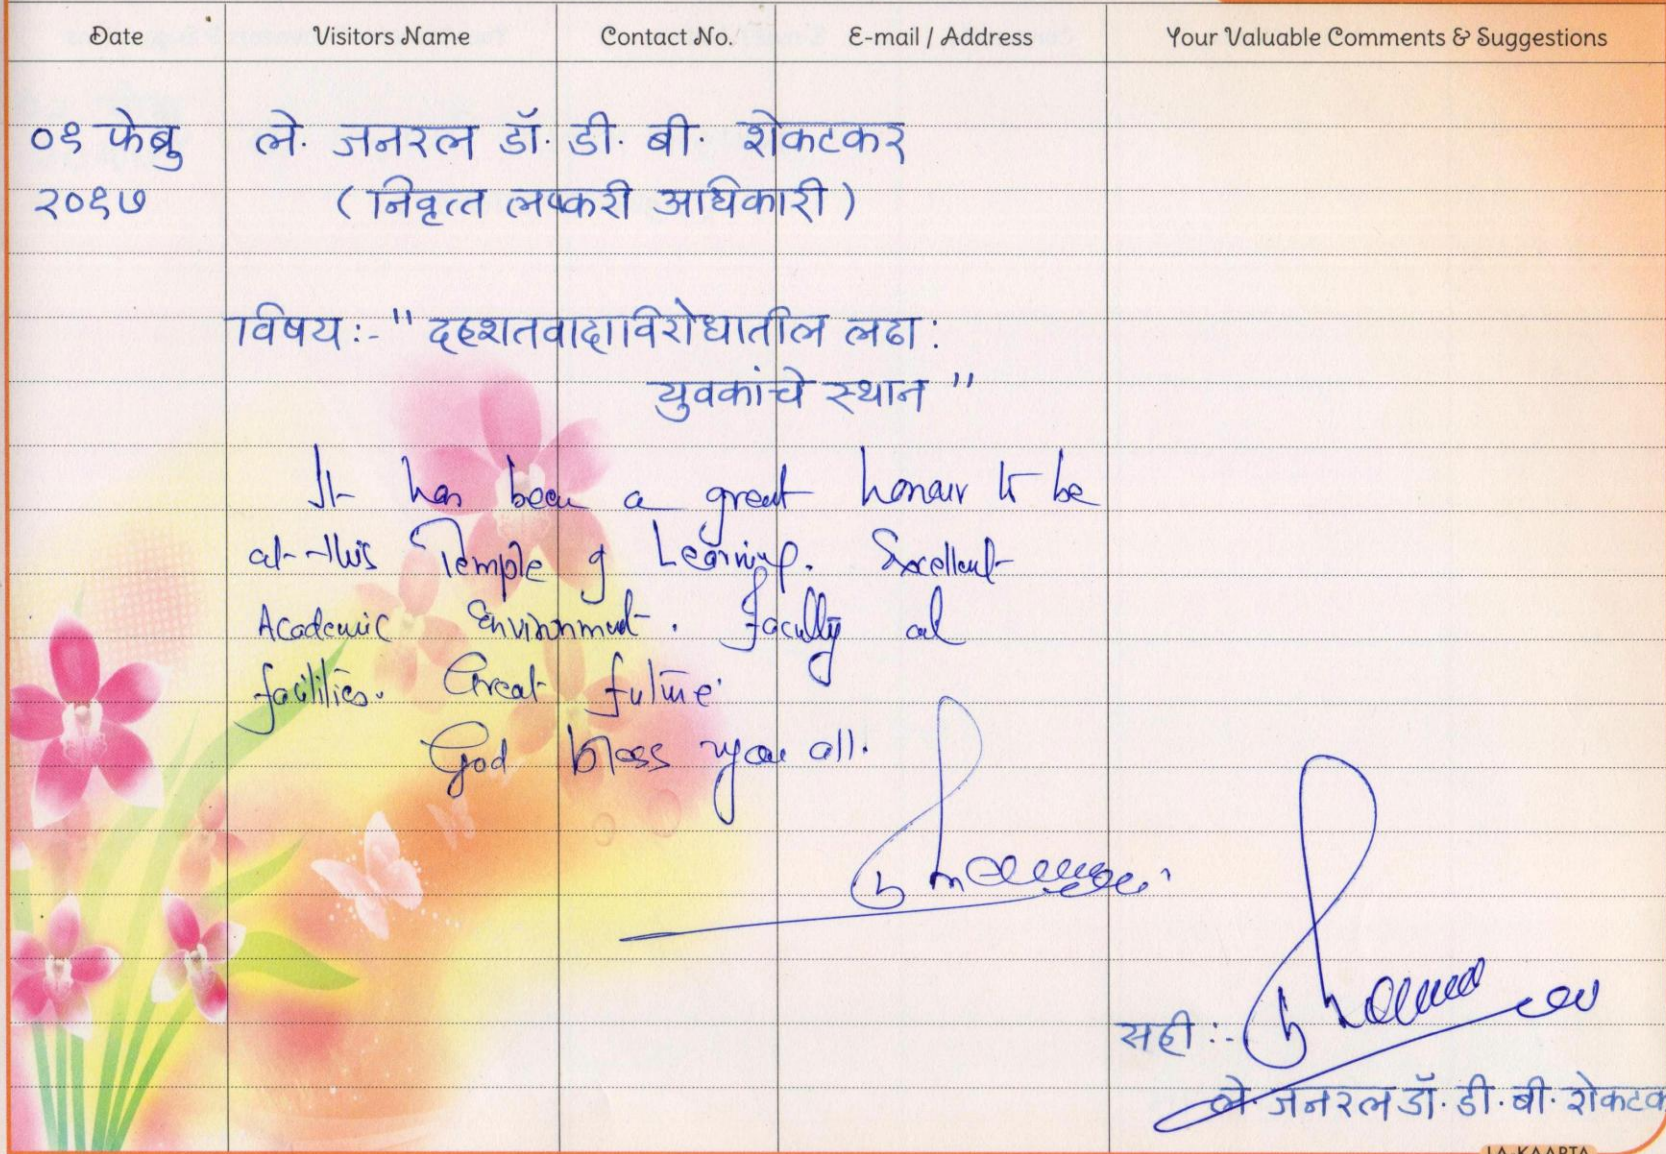 Date Visitors Name Contact No. E-mail / Address Your Valuable Comments & Suggestions
०१ फेब्रु ले. जनरल डॉ. डी. बी. शेकटकर
२०१७ (निवृत्त लष्करी अधिकारी)
विषय:- " दहशतवादाविरोधातील लढा :
युवकांचे स्थान "
It has been a great honour to be
at this Temple of Learning. Excellent
Academic Environment. Faculty and
facilities. Great future.
God bless you all.
सही :-
ले. जनरल डॉ. डी. बी. शेकटक
LA-KAARTA